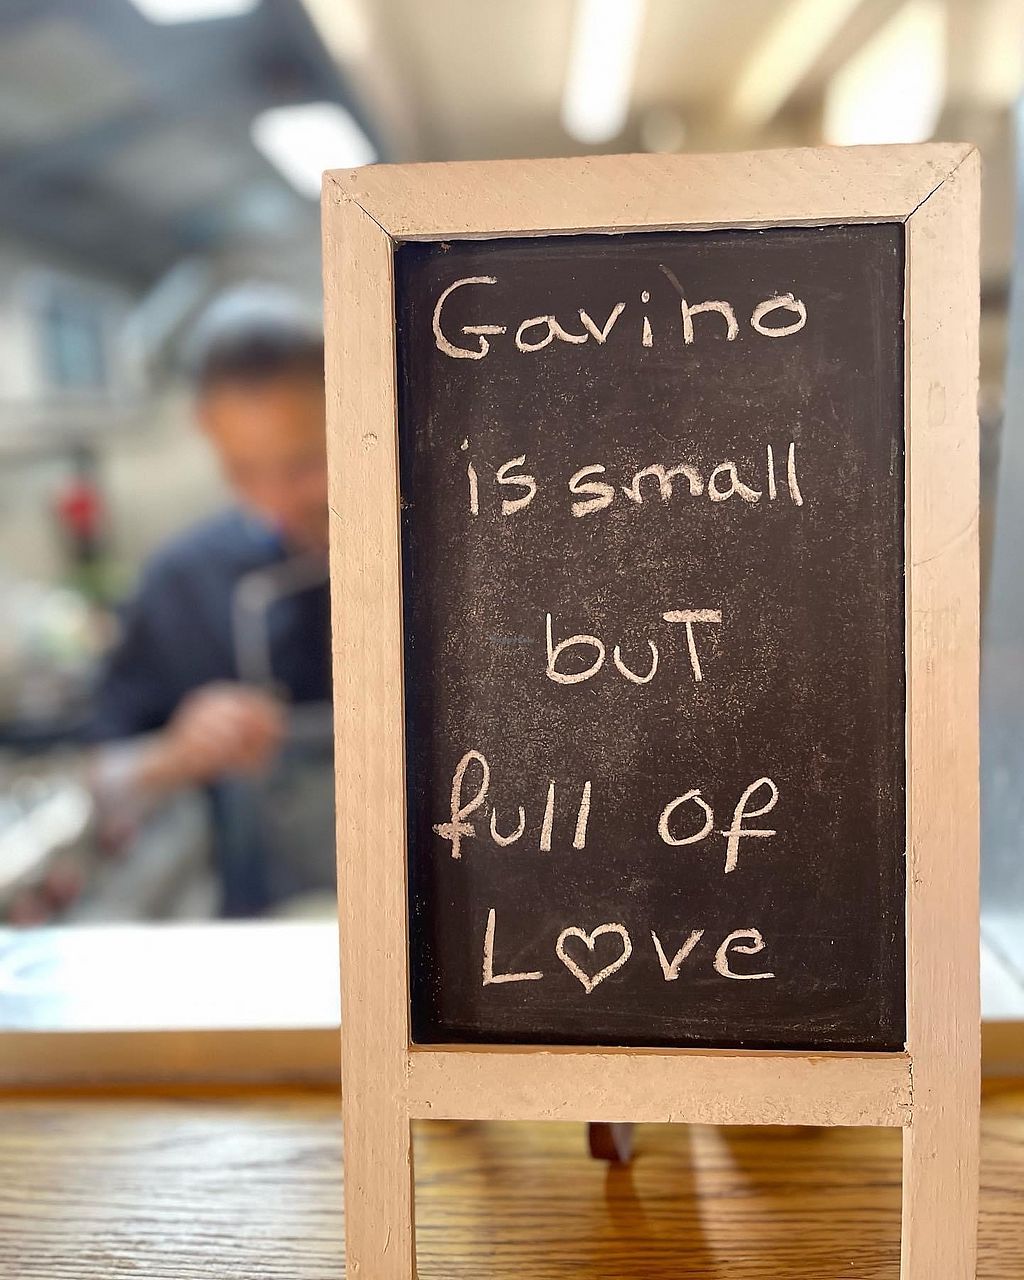 Gavino
is small
buT
full of
L♡ve